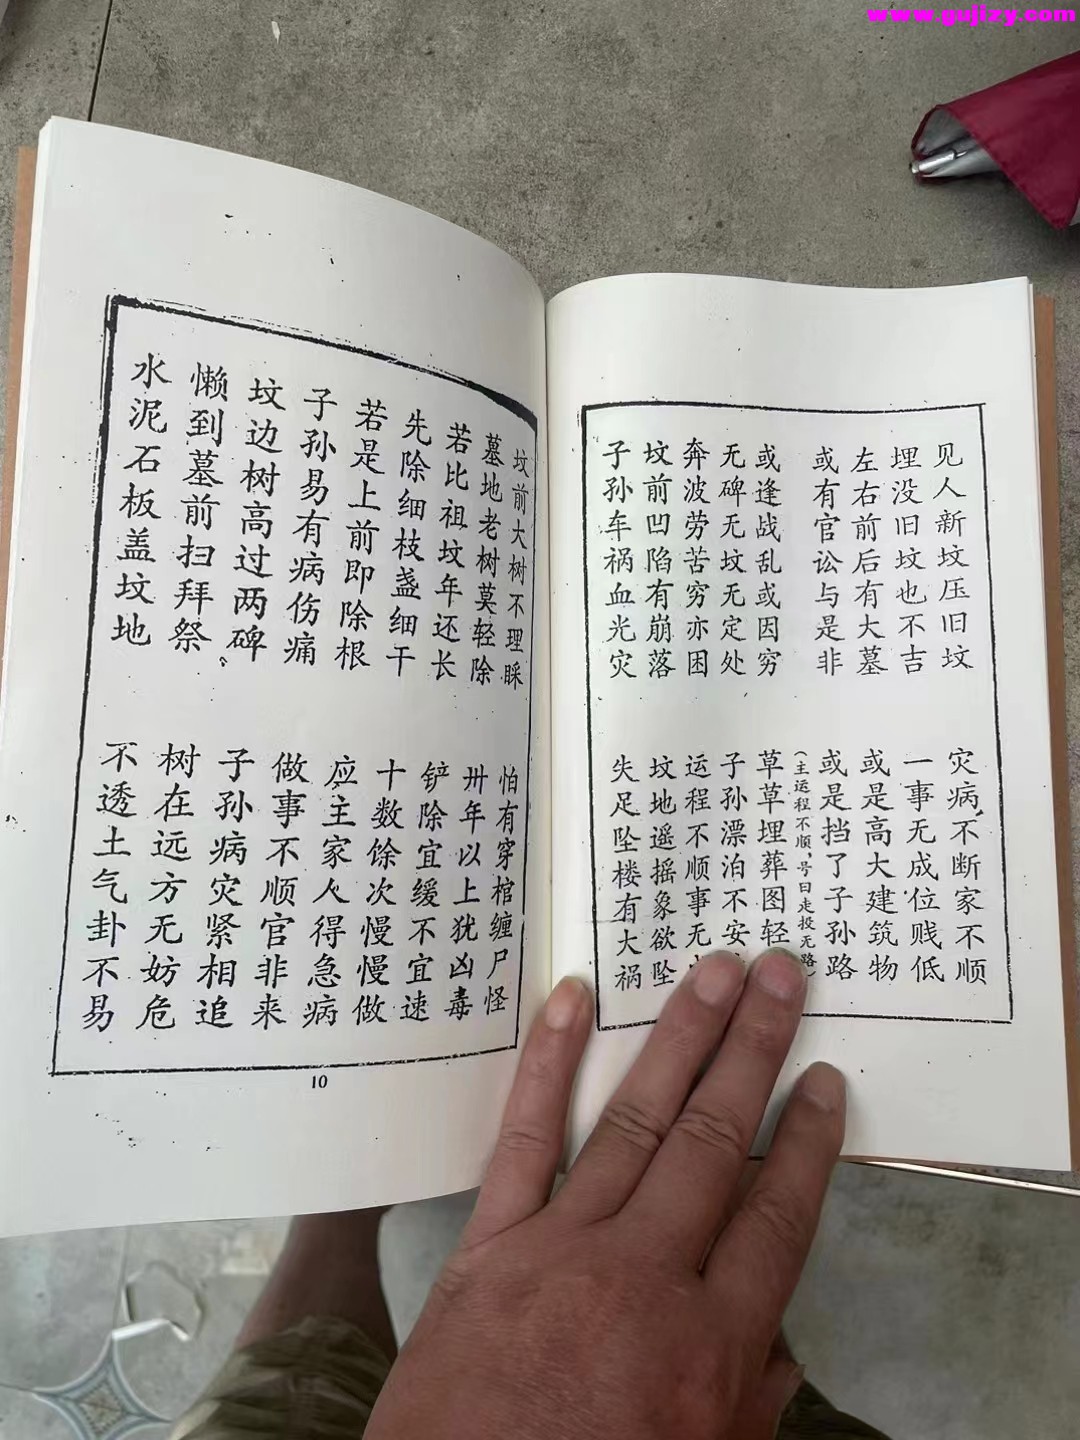 www.gujizy.com
见人新坟压旧坟 灾病不断家不顺
埋没旧坟也不吉 一事无成位贱低
左右前后有大墓 或是高大建筑物
或有官讼与是非 或是挡了子孙路
(主运程不顺,号曰走投无路)
或逢战乱或因穷 草草埋葬图轻
无碑无坟无定处 子孙漂泊不安
奔波劳苦穷亦困 运程不顺事无
坟前凹陷有崩落 坟地遥摇象欲坠
子孙车祸血光灾 失足坠楼有大祸
坟前大树不理睬 怕有穿棺缠尸怪
墓地老树莫轻除 卅年以上犹凶毒
若比祖坟年还长 铲除宜缓不宜速
先除细枝盏细干 十数馀次慢慢做
若是上前即除根 应主家人得急病
子孙易有病伤痛 做事不顺官非来
坟边树高过两碑 子孙病灾紧相追
懒到墓前扫拜祭 树在远方无妨危
水泥石板盖坟地 不透土气卦不易
10